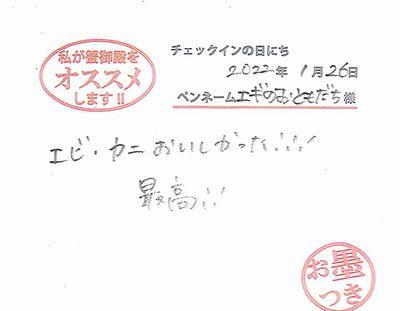 私が蟹御殿を
オススメ
します!!
チェックインの日にち
2022年 1月26日
ペンネームエギのおともだち様
エビ・カニおいしかった!!!
最高!!
お墨
つき